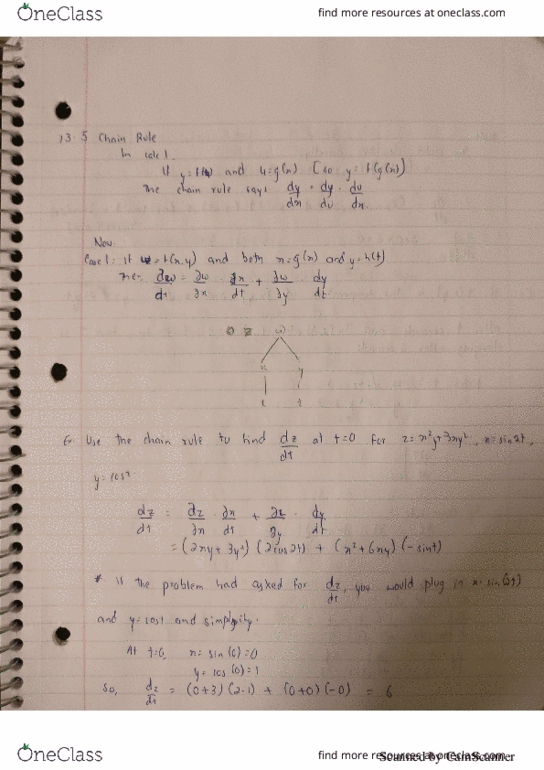 OneClass
find more resources at oneclass.com
13.5 Chain Rule
In calc 1.
If y=f(u) and u=g(x) [so y=f(g(x))
The chain rule says dy/dx = dy/du · du/dx
Now
Case 1: If w=f(x,y) and both x=g(x) and y=h(t)
then ∂w/dt = ∂w/∂x · ∂x/dt + ∂w/∂y · dy/dt
z w
x y
t t
Use the chain rule to find dz/dt at t=0 for z=x²y+3xy², x=sin2t,
y=cost
dz/dt = ∂z/∂x · ∂x/dt + ∂z/∂y · dy/dt
=(2xy+3y²)(2cos2t) + (x²+6xy)(-sint)
* If the problem had asked for dz/dt, you would plug in x=sin(2t)
and y=cost and simplify.
At t=0, x=sin(0)=0
y=cos(0)=1
So, dz/dt = (0+3)(2·1) + (0+0)(-0) = 6
OneClass
find more resources at oneclass.com
Scanned by CamScanner